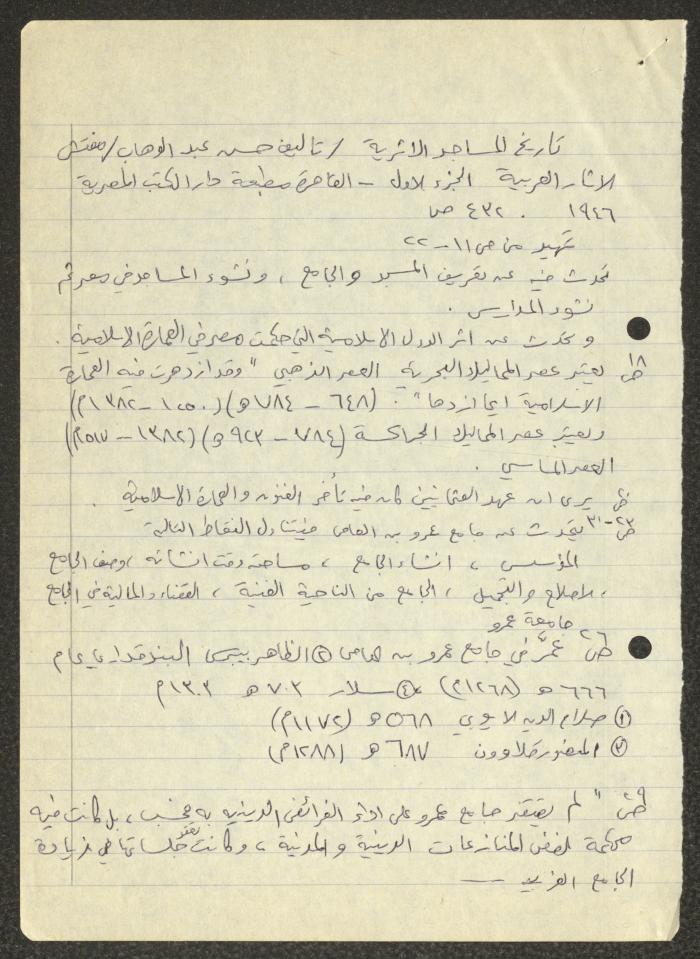 تاريخ المساجد الاثرية / تاليف حسن عبد الوهاب / مفتش
الاثار العربية الجزء الاول - القاهرة مطبعة دار الكتب المصرية
١٩٤٦ . ٤٣٢ ص
تمهيد من ص ١١-٢٢
تحدث فيه عن تعريف المسجد والجامع ، ونشوء المساجد في مصر ثم
نشوء المدارس .
و تحدث عن اثر الدول الاسلامية التي حكمت مصر في العمارة الاسلامية .
ص١٨ يعتبر عصر المماليك البحرية العصر الذهبي " وقد ازدهرت فيه العمارة
الاسلامية ايما ازدهار " . (٦٤٨ - ٧٨٤ هـ) (١٢٥٠ - ١٣٨٢م)
ويعتبر عصر المماليك الجراكسة (٧٨٤ - ٩٢٣ هـ) (١٣٨٢ - ١٥١٧م)
العصر الماسي .
يرى ان عهد العثمانيين كان فيه تأخر الفنون والعمارة الاسلامية .
ص٢٣-٣١ يتحدث عن جامع عمرو بن العاص فيتناول النقاط التالية
المؤسس ، انشاء الجامع ، مساحته وقت انشائه ، وصف الجامع
، الاصلاح والتجميل ، الجامع من الناحية الفنية ، القضاء والمالية في الجامع
جامعة عمرو
ص٢٦ عمّر في جامع عمرو بن العاص ③ الظاهر بيبرس البندقداري عام
٦٦٦ هـ (١٢٦٨م) ④ سلار ٧٠٣ هـ ١٣٠٣ م
① صلاح الدين الايوبي ٥٦٨ هـ (١١٧٢م)
② المنصور قلاوون ٦٨٧ هـ (١٢٨٨م)
ص٢٩ " لم يقتصر جامع عمرو على اداء الفرائض الدينيه به فحسب ، بل كانت فيه
محكمة لفض المنازعات الدينية والمدنية ، وكانت تعقد جلساتها في زيادة
الجامع الغربيه